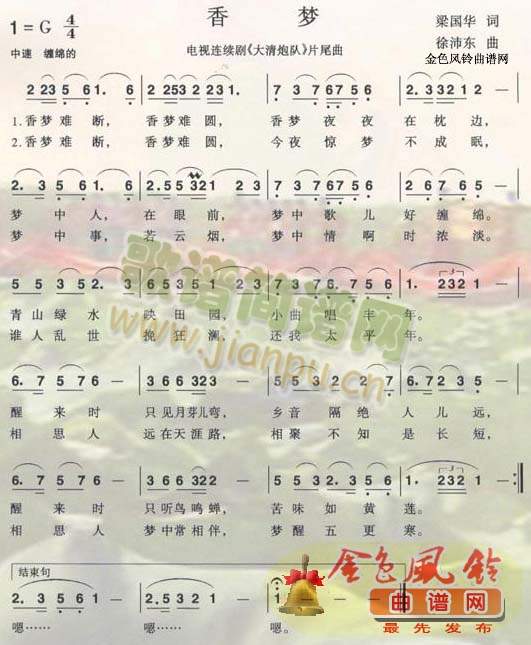 香 梦
1=G 4/4
中速 缠绵的
电视连续剧《大清炮队》片尾曲
梁国华 词
徐沛东 曲
金色风铃曲谱网
2 23 5 6 1. 3 | 2 253 2 231 | 7 3 7 67 5 6 | 2. 3 3212 —
1.香梦难断， 香梦难圆， 香梦夜夜 在枕边，
2.香梦难断， 香梦难圆， 今夜惊梦 不成眠，
2. 3 5 6 1. 6 | 2. 5 5 321 | 7 3 7 67 5 6
梦中人， 在眼前， 梦中歌儿 好缠绵。
梦中事， 若云烟， 梦中情啊 时浓淡。
青山绿水 映田园， 小曲唱丰年。
谁人乱世 挽狂澜， 还我太平年。
6. 7 5 7 6 — | 3 6 6 3 2 3 — | 5 5 3 2 7 6
醒来时 只见月芽儿弯， 乡音隔绝 人儿远，
相思人 远在天涯路， 相聚不知 是长短，
6. 7 5 7 6 —
醒来时 只听鸟鸣蝉， 苦味如黄莲。
相思人 梦中常相伴， 梦醒五更寒。
结束句
嗯…… 嗯…… 嗯。
歌谱简谱网
www.jianpu.cn
金色风铃
曲谱网
最先发布